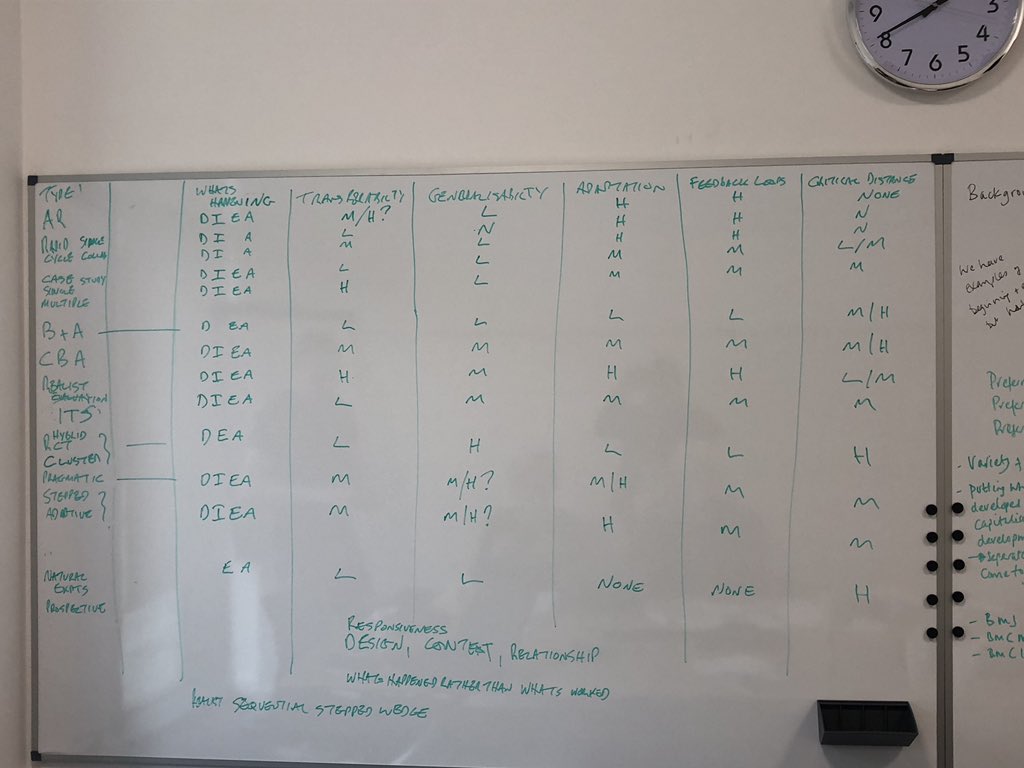 9 3
8 4
7 6 5
TYPE' WHATS HAPPENING TRANSFERABILITY GENERALISABILITY ADAPTATION FEEDBACK LOOPS CRITICAL DISTANCE
AR DIEA M/H? L H H NONE
RAPID CYCLE DI A L N H H N
DI A M L H H N
CASE STUDY DIEA L L M M L/M
SINGLE DIEA H L M M M
MULTIPLE
B+A D EA L L L L M/H
CBA DIEA M M M M M/H
REALIST EVALUATION DIEA H M H H L/M
ITS' DIEA L M M M M
HYBLID
RCT DEA L H L L H
CLUSTER
PRAGMATIC DIEA M M/H? M/H M M
STEPPED
ADAPTIVE DIEA M M/H? H M M
NATURAL EA L L NONE NONE H
EXPTS
PROSPECTIVE
RESPONSIVENESS
DESIGN, CONTEXT, RELATIONSHIP
WHATS HAPPENED RATHER THAN WHATS WORKED
SEQUENTIAL STEPPED WEDGE
Backgrou
We have
examples
beginning +
Prefer
Prefe
Prefer
- Variety
- putting
developed
capitalis
developm
Come to
- BMJ
- BMC M
- BMC